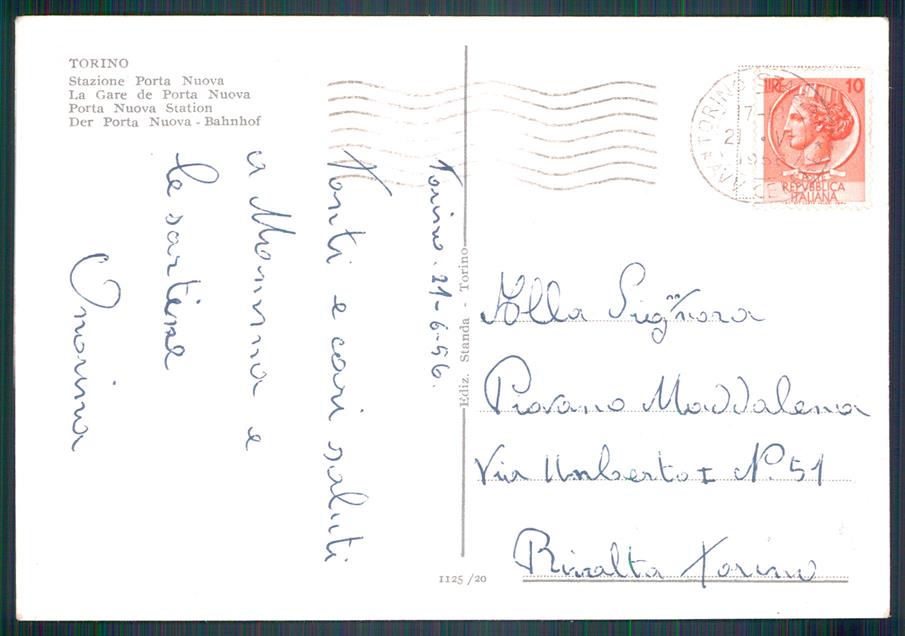 TORINO
Stazione Porta Nuova
La Gare de Porta Nuova
Porta Nuova Station
Der Porta Nuova - Bahnhof
Torino. 21-6-56.
Tanti e cari saluti
a Mamma e
le sartine
Marina
Ediz. Standa - Torino
1125/20
LIRE 10
REPVBBLICA
ITALIANA
TORINO
Alla Sig.nora
Piovano Maddalena
Via Umberto I N° 51
Rivalta Torino